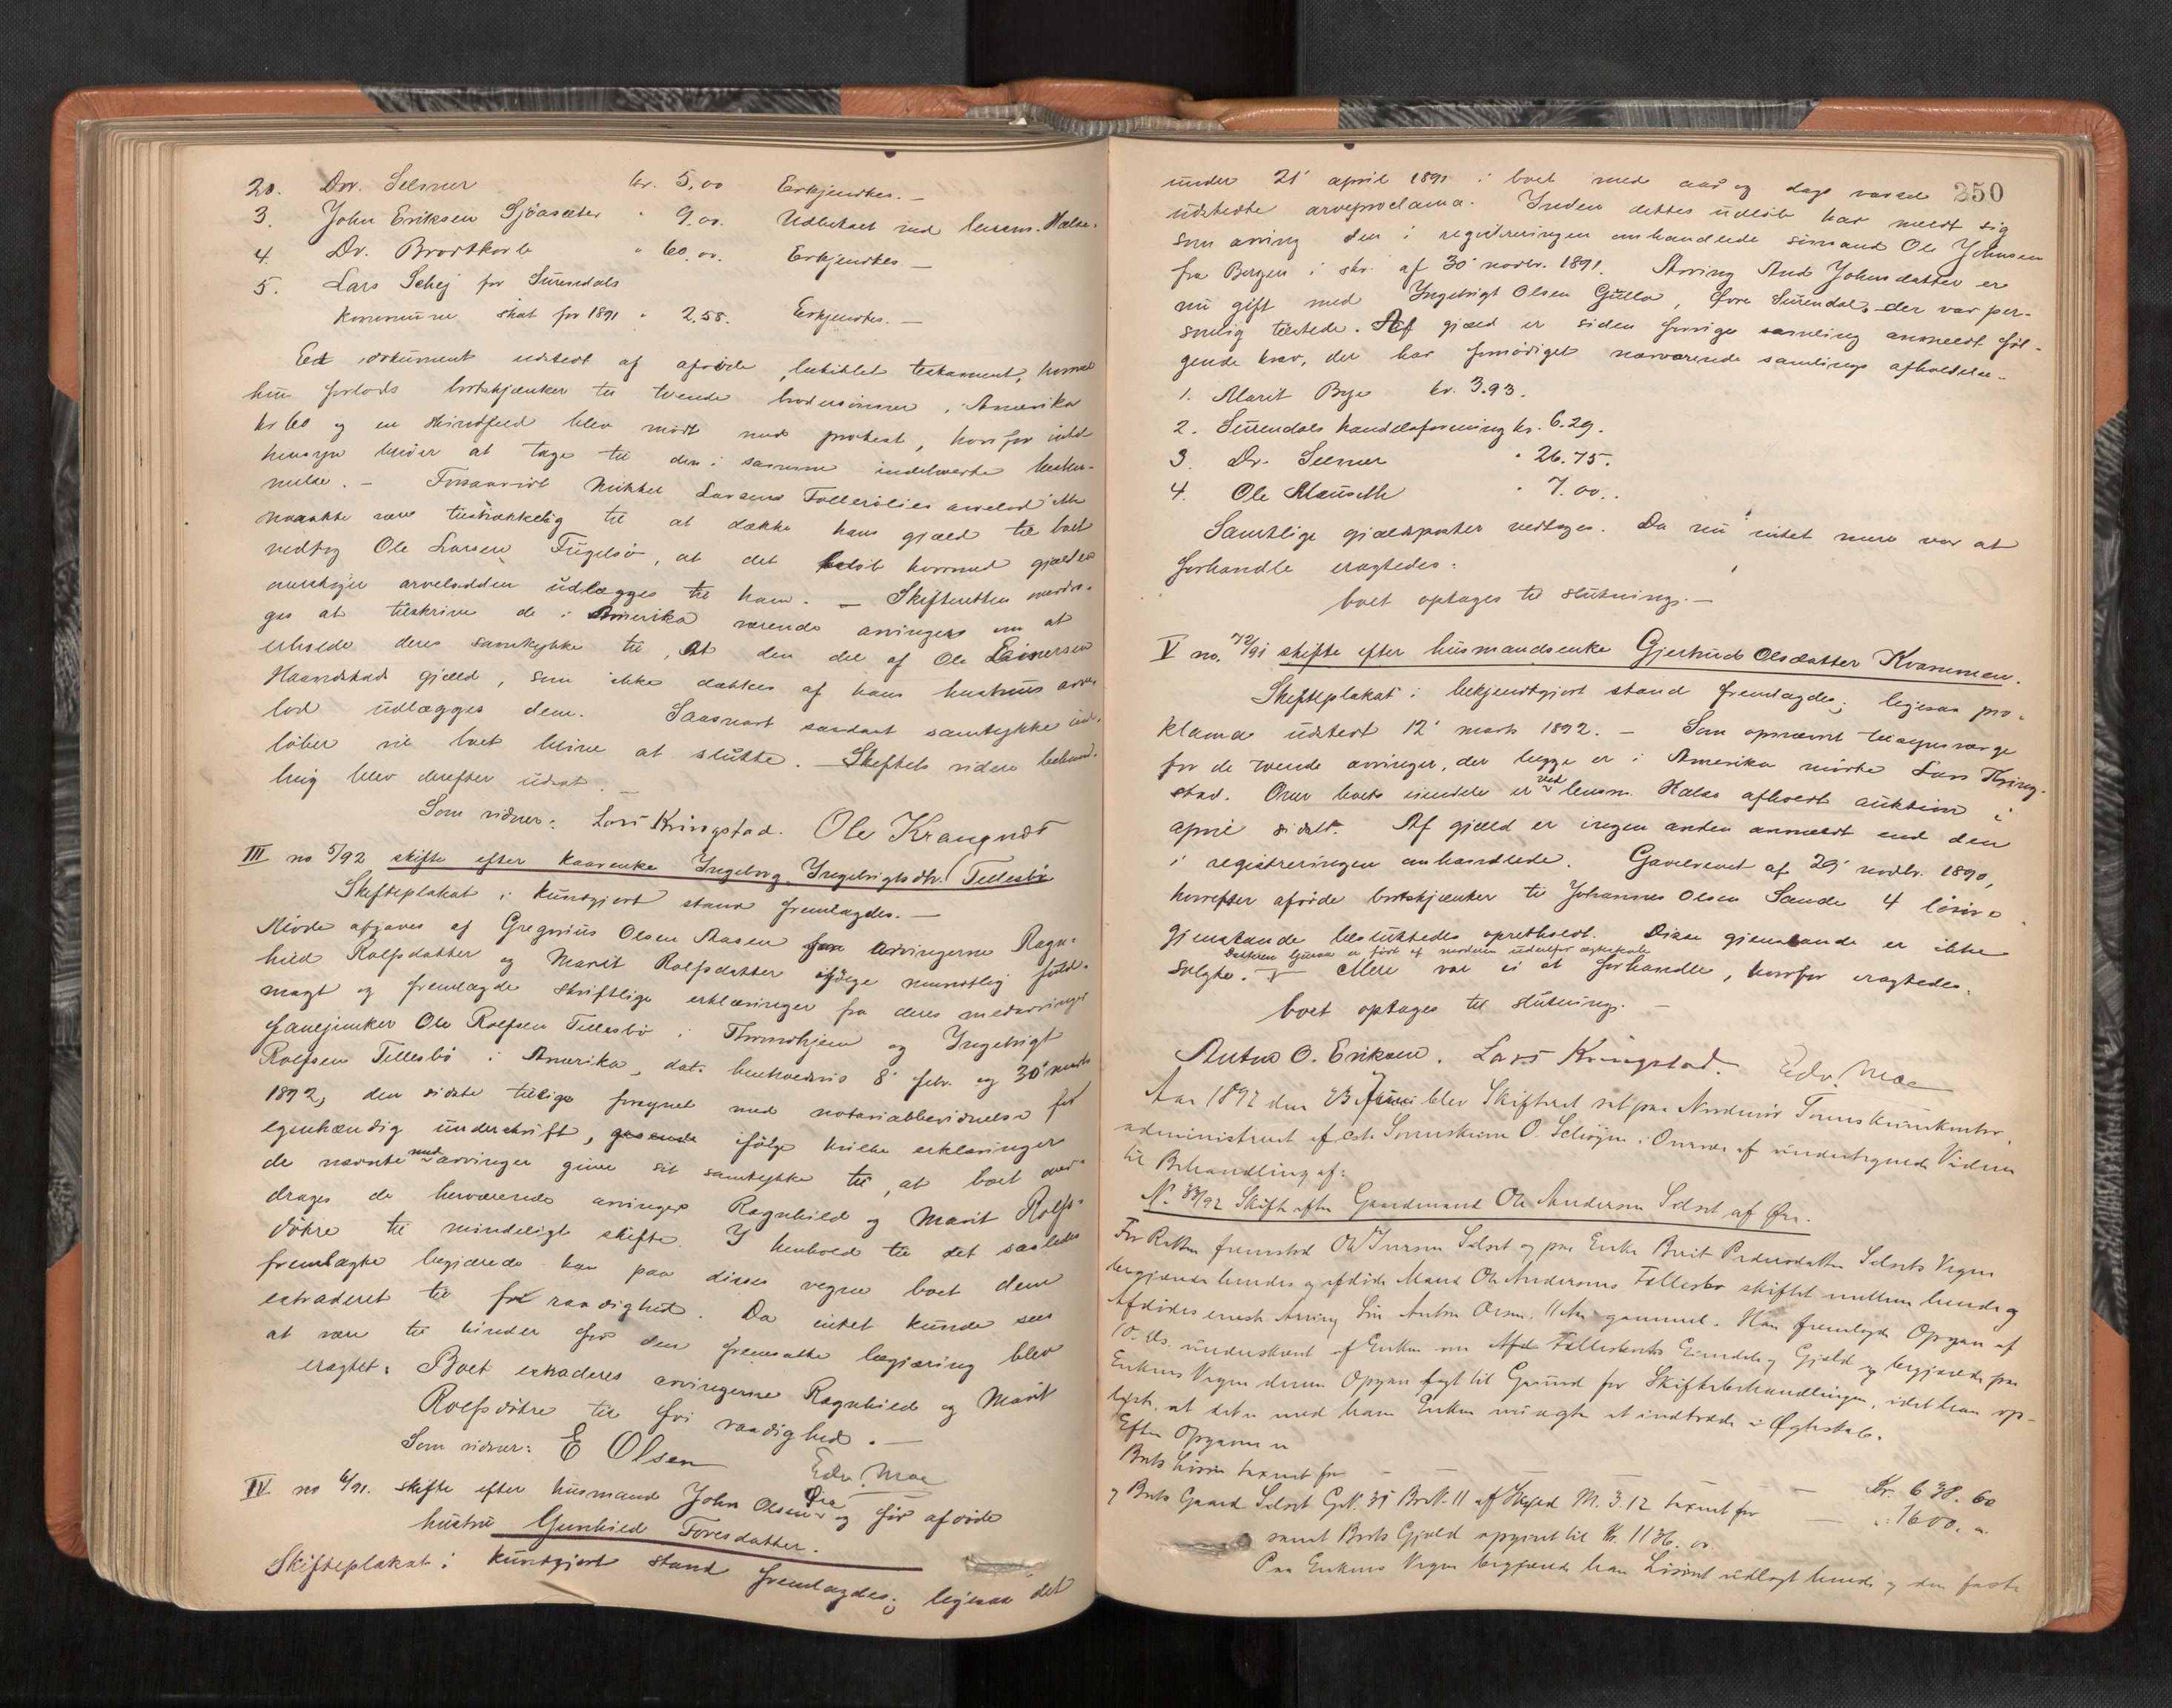 20. Dr. Selmer kr. 5,00 Erkjendtes. —
3. John Eriksen Sjöasæter " 9,00. Udbetalt ved lensm. Hælse.
4. Dr. Brodtkorb " 60,00. Erkjendtes. —
5. Lars Schej for Surendals
kommune skat for 1891 " 2,58. Erkjendtes. —
Et dokument udstedt af afdöde, betitlet testament, hvorved
hun forlods bortskjænker til tvende brodersönner i Amerika
kr 60 og en skindfeld blev mødt med protest, hvorfor intet
hensyn bliver at tage til den i samme indeholdte bestem-
melse. — Forsaavidt Mikkel Larsens Tellesböes arvelod ikke
maatte være tilstrækkelig til at dække hans gjæld til boet
vedtog Ole Larsen Fugelsö, at det beløb hvormed gjælden
overstiger arvelodden udlægges til ham. — Skifteretten overdra-
ges at tilskrive de i Amerika værende arvinger om at
erholde deres samtykke til, at den del af Ole Einersen
Haandstads gjæld, som ikke dækkes af hans hustrus arve
lod udlægges dem. Saasnart saadant samtykke ind-
löber vil boet blive at slutte. — Skiftets videre behand-
ling blev derefter udsat. —
Som vidner: Lars Kringstad. Ole Kranqndt
III no 5/92 skifte efter kaarenke Ingeborg Ingebrigtsdtr. Tellesbö
Skifteplakat i kundgjort stand fremlagdes. —
Möde afgaves af Gregorius Olsen Aasen for arvingerne Ragn-
hild Rolfsdatter og Marit Rolfsdatter ifölge mundtlig fuld-
magt og fremlagde skriftlige erklæringer fra deres medarvinger
fanejunker Ole Rolfsen Tellesbö i Throndhjem og Ingebrigt
Rolfsen Tellesbö i Amerika, dat. henholdsvis 8' febr. og 30' marts
1892, den sidste tillige forsynet med notarialbevidnelse for
egenhændig underskrift, ifölge hvilke erklæringer
de nævnte medarvinger give sit samtykke til, at boet over-
drages de herværende arvinger Ragnhild og Marit Rolfs-
döttre til mindeligt skifte. I henhold til det saaledes
fremlagte begjærede han paa disses vegne boet dem
extraderet til fri raadighed. Da intet kunde sees
at være til hinder for den fremsatte begjæring blev
eragtet: Boet extraderes arvingerne Ragnhild og Marit
Rolfsdöttre til fri raadighed. —
Som vidner: E Olsen Edv. Moe
IV no 6/91. skifte efter husmand John Olsen og för afdöde
hustru Gunhild Toresdatter.
Skifteplakat i kundgjort stand fremlagdes; ligesaa det
250
under 21' april 1891 i boet med aar og dags varsel
udstedte arveproclama. Inden dettes udløb har meldt sig
som arving den i registreringen omhandlede sömand Ole Johnsen
fra Bergen i skr. af 30' novbr. 1891. Arving And Johnsdatter er
nu gift med Ingebrigt Olsen Gulla, Övre Surendal, der var per-
sonlig tilstede. Af gjæld er siden forrige samling anmeldt föl-
gende krav, der har fornödiget nærværende samlings afholdelse.
1. Marit Bye kr. 3.93.
2. Surendals handelsforening kr. 6.29.
3. Dr. Selmer " 26.75.
4. Ole Mauseth " 7.00.
Samtlige gjældsposter vedtoges. Da nu intet mere var at
forhandle eragtedes:
boet optages til slutning. —
V no. 72/91 skifte efter husmandsenke Gjertrud Olsdatter Kvammen.
Skifteplakat i bekjendtgjort stand fremlagdes; ligesaa pro-
klama udstedt 12' marts 1892. — Som opnævnt tilsynsværge
for de tvende arvinger, der begge er i Amerika mødte Lars Kring-
stad. Over boets eiendele er ved lensm. Hælse afholdt auktion i
april sidstl. Af gjæld er ingen anden anmeldt end den
i registreringen omhandlede. Gavebrevet af 29' novbr. 1890,
hvorefter afdöde bortskjænker til Johannes Olsen Sande 4 lösöre
gjenstande besluttedes opretholdt. Disse gjenstande er ikke
Datteren Guroa er født af moderen udenfor ægteskab
solgte. — Mere var ei at forhandle, hvorfor eragtedes:
boet optages til slutning. —
Anton O. Eriksen. Lars Kringstad. Edv. Moe
Aar 1892 den 23 Juni blev Skifteret sat paa Nordmör Sorenskriverkontor,
administreret af cst. Sorenskriver O. Schöyen i Overvær af undertegnede Vidner
til Behandling af:
No. 33/92 Skifte efter Gaardmand Ole Andersen Selset af Öre.
For Retten fremstod Ole Iversen Selset og paa Enke Berit Pedersdatter Selsets Vegne
begjærede hendes og afdöde Mand Ole Andersens Fællesbo skiftet mellem hende og
Afdödes eneste Arving Sön Anton Olsen, 11 Aar gammel. Han fremlagde Opgave af
10. ds. underskrevet af Enken om Fællesboets Eiendele og Gjæld og begjærede paa
Enkens Vegne denne Opgave lagt til Grund for Skiftebehandlingen, idet han op-
lyste, at det er med ham Enken nu agter at indtræde i Ægteskab.
Efter Opgaven er
Boets Lösöre taxeret for — — — — Kr. 638. 60
og Boets Gaard Selset G.N. 35 Br.N. 11 af Skyld M. 3.12 taxeret for — " 1600. "
samt Boets Gjæld opgivet til Kr. 1136. 00.
Paa Enkens Vegne begjærede han Lösöret udlagt hende og den faste